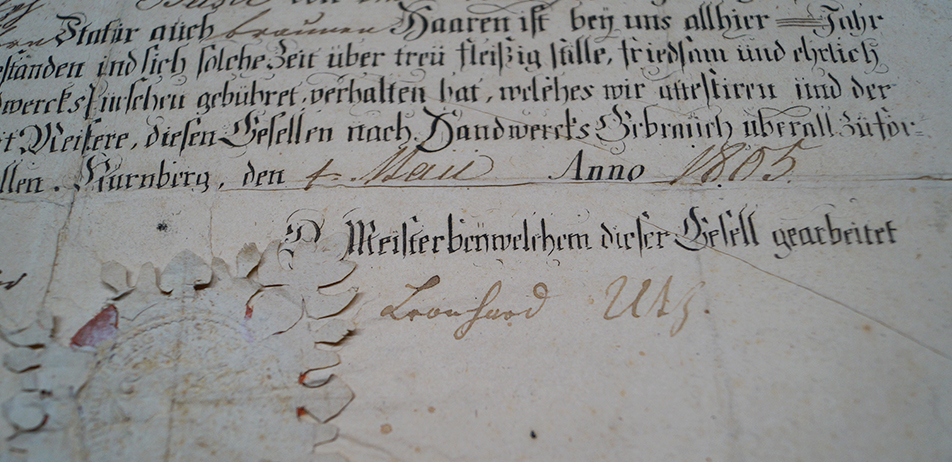 Statür auch braunen Haaren ist bey uns allhier Jahr
eständen ind sich solche Zeit über treü fleißig stille, friedsam ünd ehrlich
dwercks gebühret, verhalten hat, welches wir attestiren ünd der
t Meistere, diesen Gesellen nach Handwercks Gebraüch überall zü för-
llen. Nürnberg, den 4 May Anno 1805.
Meister beÿ welchem dieser Gesell gearbeitet
Leonhard Utz.